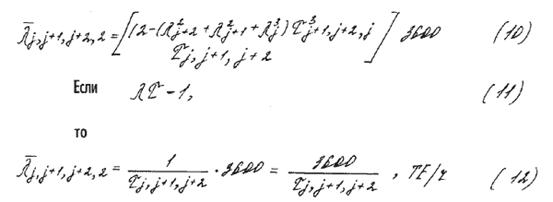 λ̄j,j+1,j+2,2 = [12-(λ²j+2+λ²j+1+λ³j)τ³j+1,j+2,j / τj,j+1,j+2] 3600 (10)
Если λτ-1, (11)
то
λ̄j,j+1,j+2,2 = 1/τj,j+1,j+2 · 3600 = 3600/τj,j+1,j+2, ТЕ/ч (12)